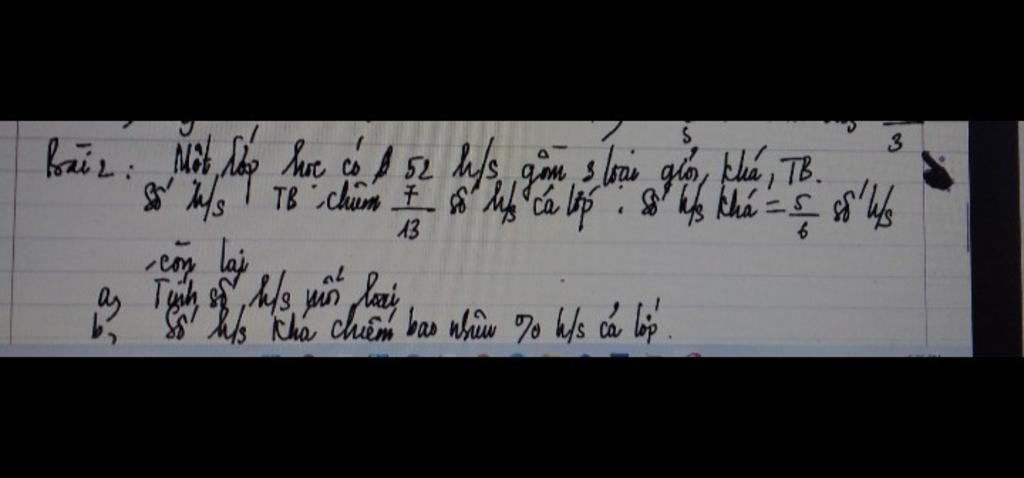 3
Bài 2: Một lớp học có 52 h/s gồm 3 loại giỏi, khá, TB.
Số h/s TB chiếm 7/13 số h/s cả lớp. Số h/s khá = 5/6 số h/s
còn lại
a, Tính số h/s mỗi loại
b, Số h/s khá chiếm bao nhiêu % h/s cả lớp.